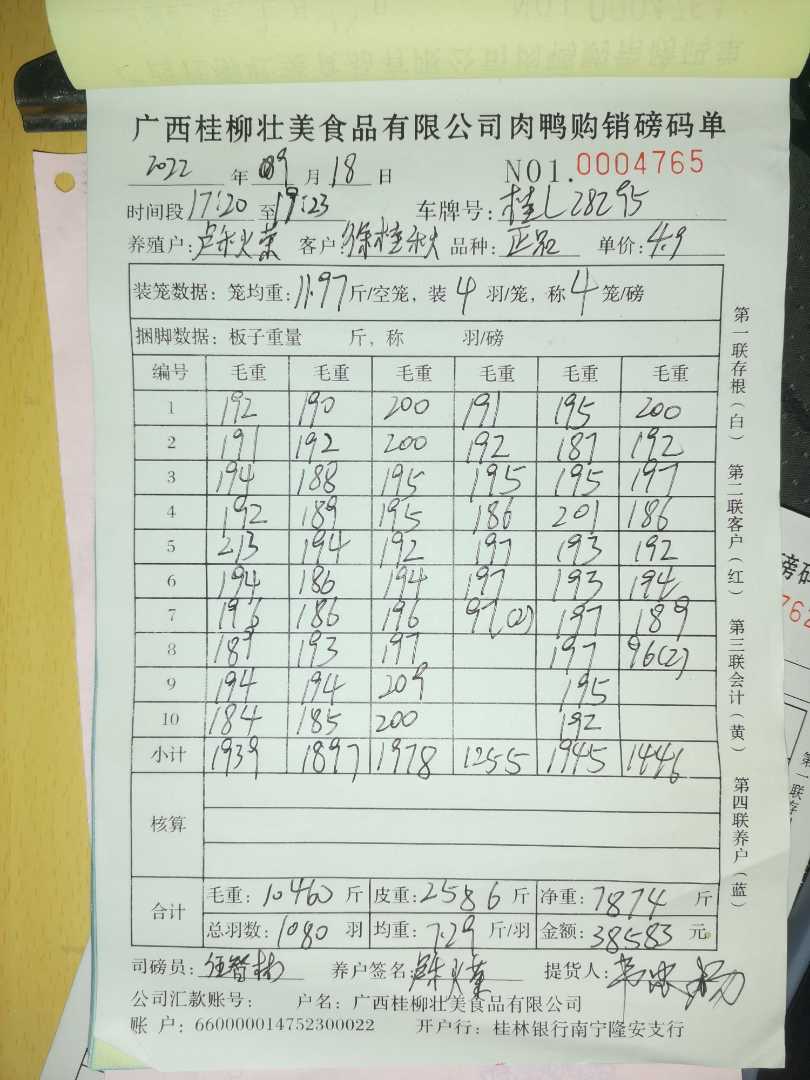 广西桂柳壮美食品有限公司肉鸭购销磅码单
2022 年 09 月 18 日 NO1.0004765
时间段 17:20 至 19:23 车牌号: 桂L28295
养殖户: 客户: 徐桂秋 品种: 正品 单价: 4.9
装笼数据: 笼均重: 11.97 斤/空笼, 装 4 羽/笼, 称 4 笼/磅
捆脚数据: 板子重量 斤, 称 羽/磅
编号 毛重 毛重 毛重 毛重 毛重 毛重
1 192 190 200 191 195 200
2 191 192 200 192 187 192
3 194 188 195 195 195 197
4 192 189 195 186 201 186
5 213 194 192 197 193 192
6 194 186 194 197 193 194
7 196 186 196 97(2) 197 189
8 189 193 197 197 96(2)
9 194 194 209 195
10 184 185 200 192
小计 1939 1897 1978 1255 1945 1446
核算
合计
毛重: 10460 斤 皮重: 2586 斤 净重: 7874 斤
总羽数: 1080 羽 均重: 7.29 斤/羽 金额: 38583 元
司磅员: 养户签名: 提货人:
公司汇款账号: 户名: 广西桂柳壮美食品有限公司
账 户: 660000014752300022 开户行: 桂林银行南宁隆安支行
第一联存根(白)
第二联客户(红)
第三联会计(黄)
第四联养户(蓝)
磅码
762
第一联存